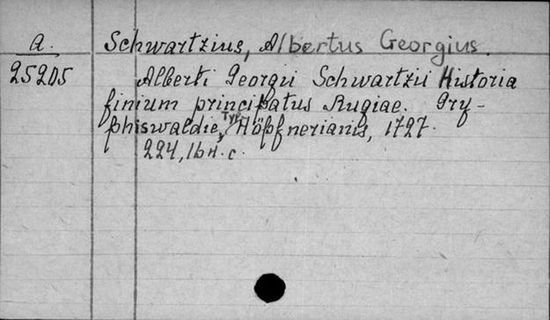 a. Schwartzius, Albertus Georgius.
25205 Alberti Georgii Schwartzii Historia
finium principatus Rugiae. Gry-
phiswaldie, Typ. Höpfnerianis, 1727.
224, 16 н. с.